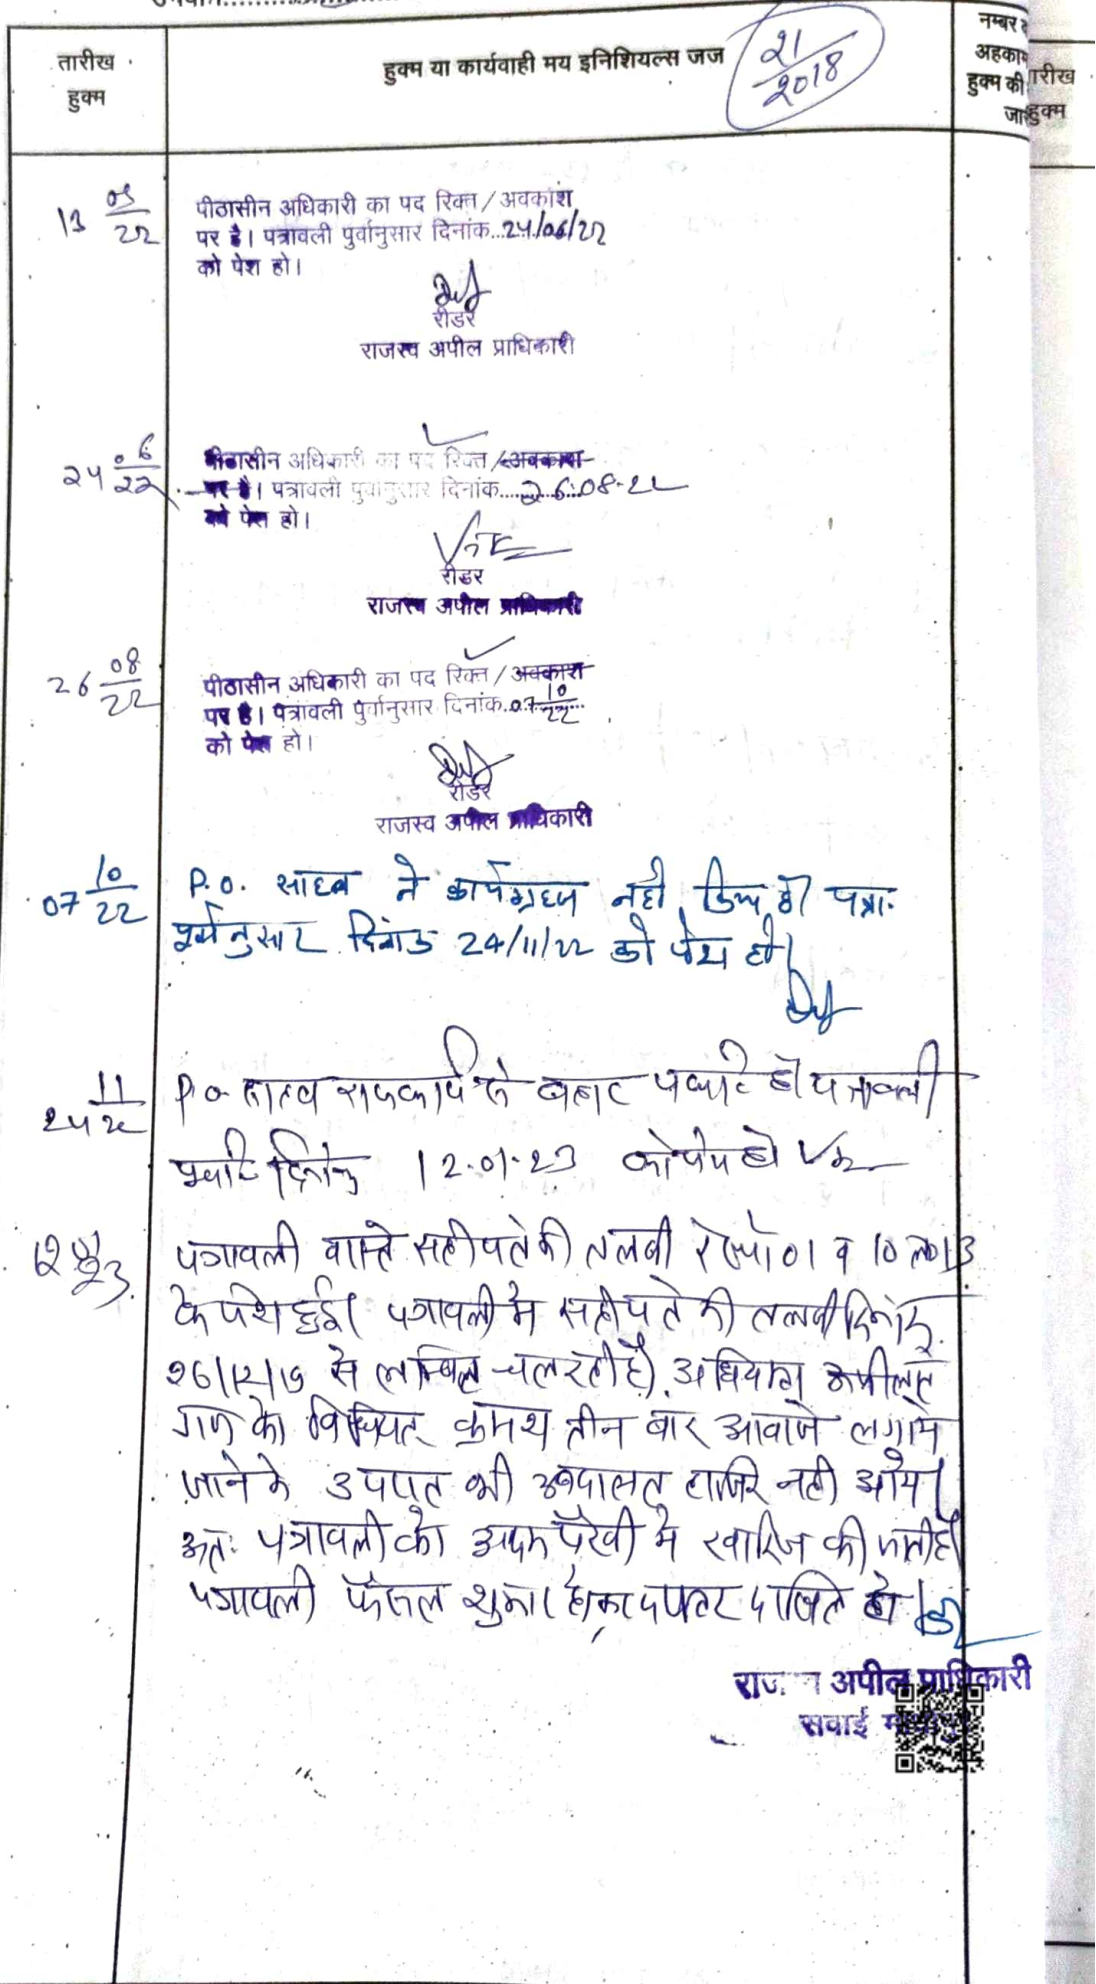 तारीख
हुक्म
हुक्म या कार्यवाही मय इनिशियल्स जज
21/2018
नम्बर
अहकाम
हुक्म की
तारीख
हुक्म
13 05/22
पीठासीन अधिकारी का पद रिक्त/अवकाश
पर है। पत्रावली पुर्वानुसार दिनांक...24/06/22
को पेश हो।
रीडर
राजस्व अपील प्राधिकारी
24 06/22
पीठासीन अधिकारी का पद रिक्त/अवकाश
पर है। पत्रावली पुर्वानुसार दिनांक......26.08.22
को पेश हो।
रीडर
राजस्व अपील प्राधिकारी
26 08/22
पीठासीन अधिकारी का पद रिक्त/अवकाश
पर है। पत्रावली पुर्वानुसार दिनांक..07 10/22
को पेश हो।
रीडर
राजस्व अपील प्राधिकारी
07 10/22
P.O. साहब ने कार्यग्रहण नही किया है। पत्रा.
पूर्वानुसार दिनांक 24/11/22 को पेश हो।
24 11/22
P.O साहब राजकार्य से बाहर है पत्रावली
दिनांक 12.01.23 को पेश हो
पत्रावली वास्ते सही पते की तलवी रेस्पो 01 व 10 ता 13
के पेश हुई। पत्रावली मे सही पते की तलवी दिनांक
26/12/19 से लम्बित चल रही है।
गण को विधिवत क्रमश तीन बार आवाजे लगाये
जाने के उपरांत भी अदालत हाजिर नही आये।
अतः पत्रावली को अदम पैरवी मे खारिज की जाती है।
पत्रावली फैसल शुमार होकर दाखिल दफ्तर हो।
अपील प्राधिकारी
सवाई